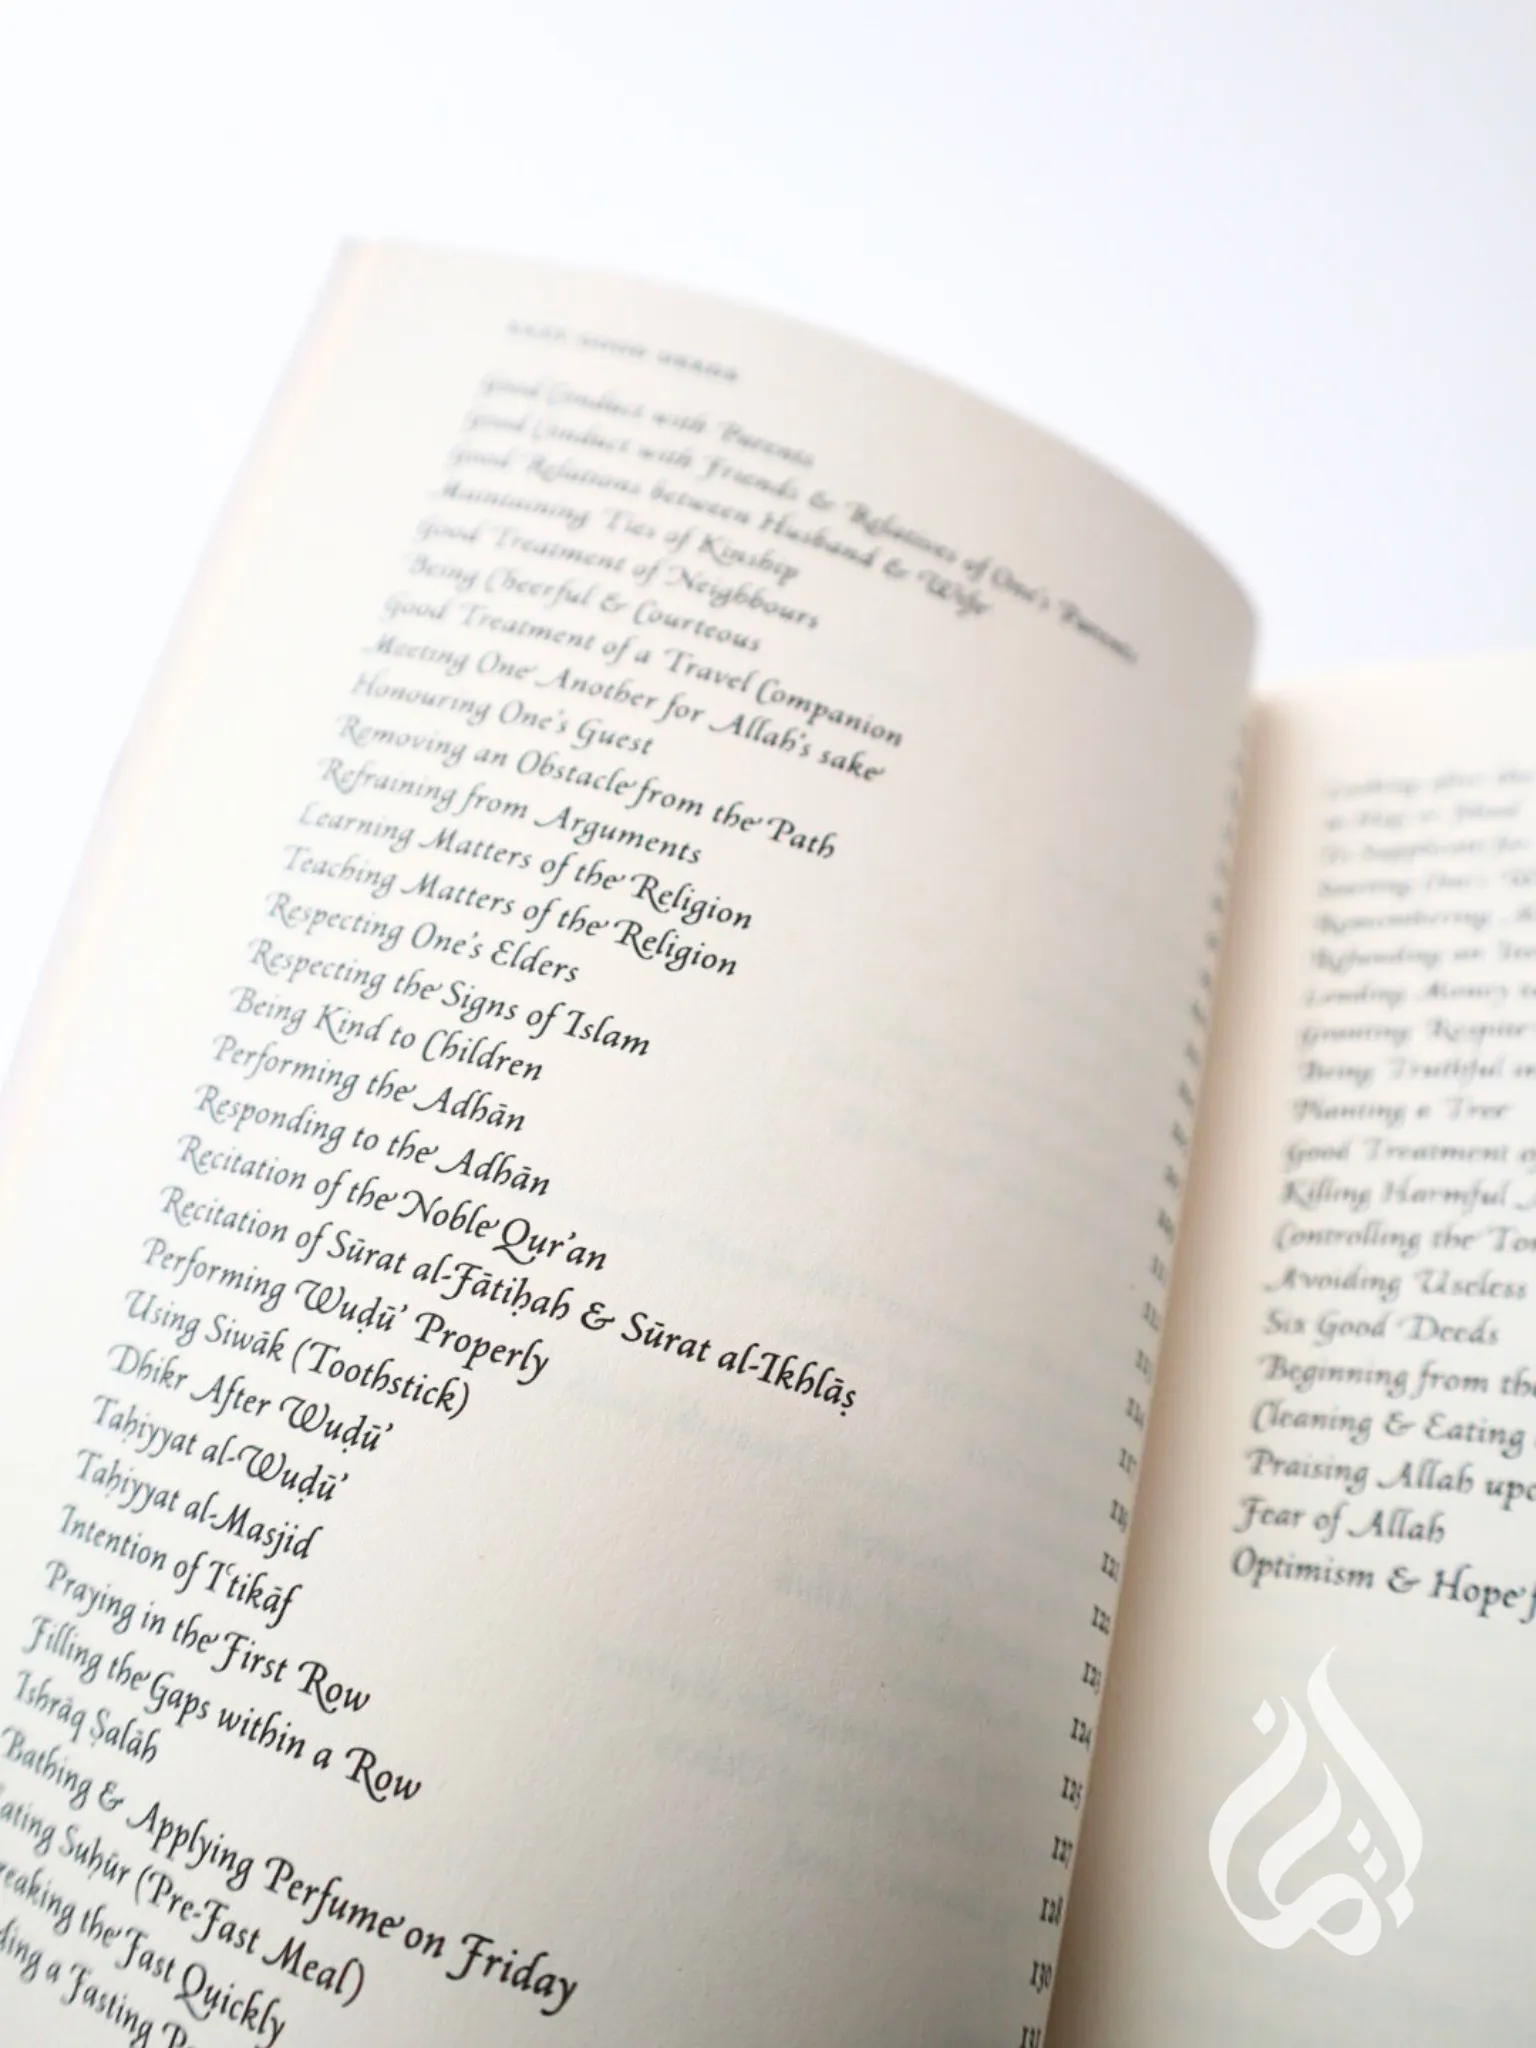 EASY GOOD DEEDS
Good Conduct with Parents
Good Conduct with Friends & Relatives of One's Parents
Good Relations between Husband & Wife
Maintaining Ties of Kinship
Good Treatment of Neighbours
Being Cheerful & Courteous
Good Treatment of a Travel Companion
Meeting One Another for Allah's sake
Honouring One's Guest
Removing an Obstacle from the Path
Refraining from Arguments
Learning Matters of the Religion
Teaching Matters of the Religion
Respecting One's Elders
Respecting the Signs of Islam
Being Kind to Children
Performing the Adhān
Responding to the Adhān
Recitation of the Noble Qur'an
Recitation of Sūrat al-Fātiḥah & Sūrat al-Ikhlāṣ
Performing Wuḍū' Properly
Using Siwāk (Toothstick)
Dhikr After Wuḍū'
Taḥiyyat al-Wuḍū'
Taḥiyyat al-Masjid
Intention of Iʿtikāf
Praying in the First Row
Filling the Gaps within a Row
Ishrāq Ṣalāh
Bathing & Applying Perfume on Friday
ating Suḥūr (Pre-Fast Meal)
eaking the Fast Quickly
ding a Fasting
117
119
121
122
123
124
125
127
128
130
131
Remembering
Lending Money to
Granting Respite
Being Truthful
Planting a Tree
Good Treatment of
Killing Harmful
Controlling the Ton
Avoiding Useless
Six Good Deeds
Beginning from the
Cleaning & Eating
Praising Allah upo
Fear of Allah
Optimism & Hope f
إيمان